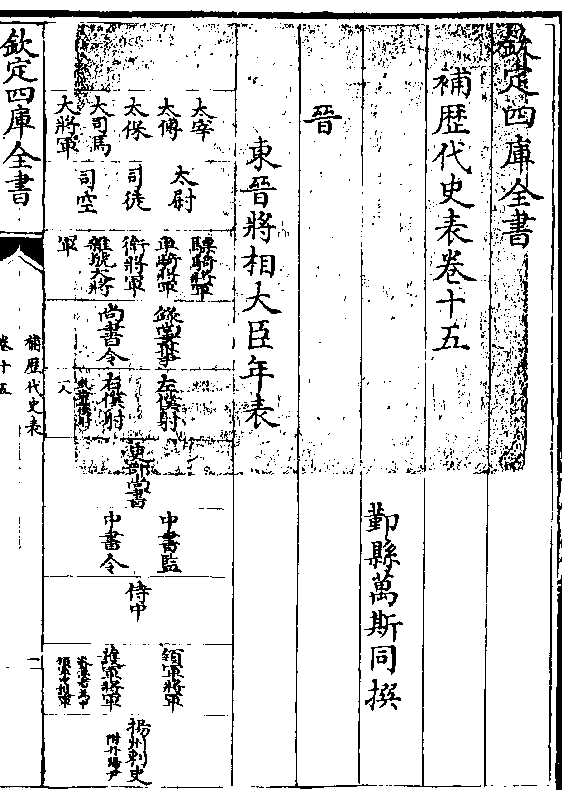 欽定四庫全書
補歴代史表卷十五
鄞縣萬斯同撰
晉
東晉將相大臣年表
太宰
太傅
太保
大司馬
大將軍
太尉
司徒
司空
驃騎將軍
車騎將軍
衛將軍
雜號大將
軍
錄尚書事
尚書令
左僕射
右僕射
人
吏部尚書
中書監
中書令
侍中
領軍將軍
護軍將軍
揚州刺史
附丹陽尹
欽定四庫全書
補歴代史表
卷十五
一